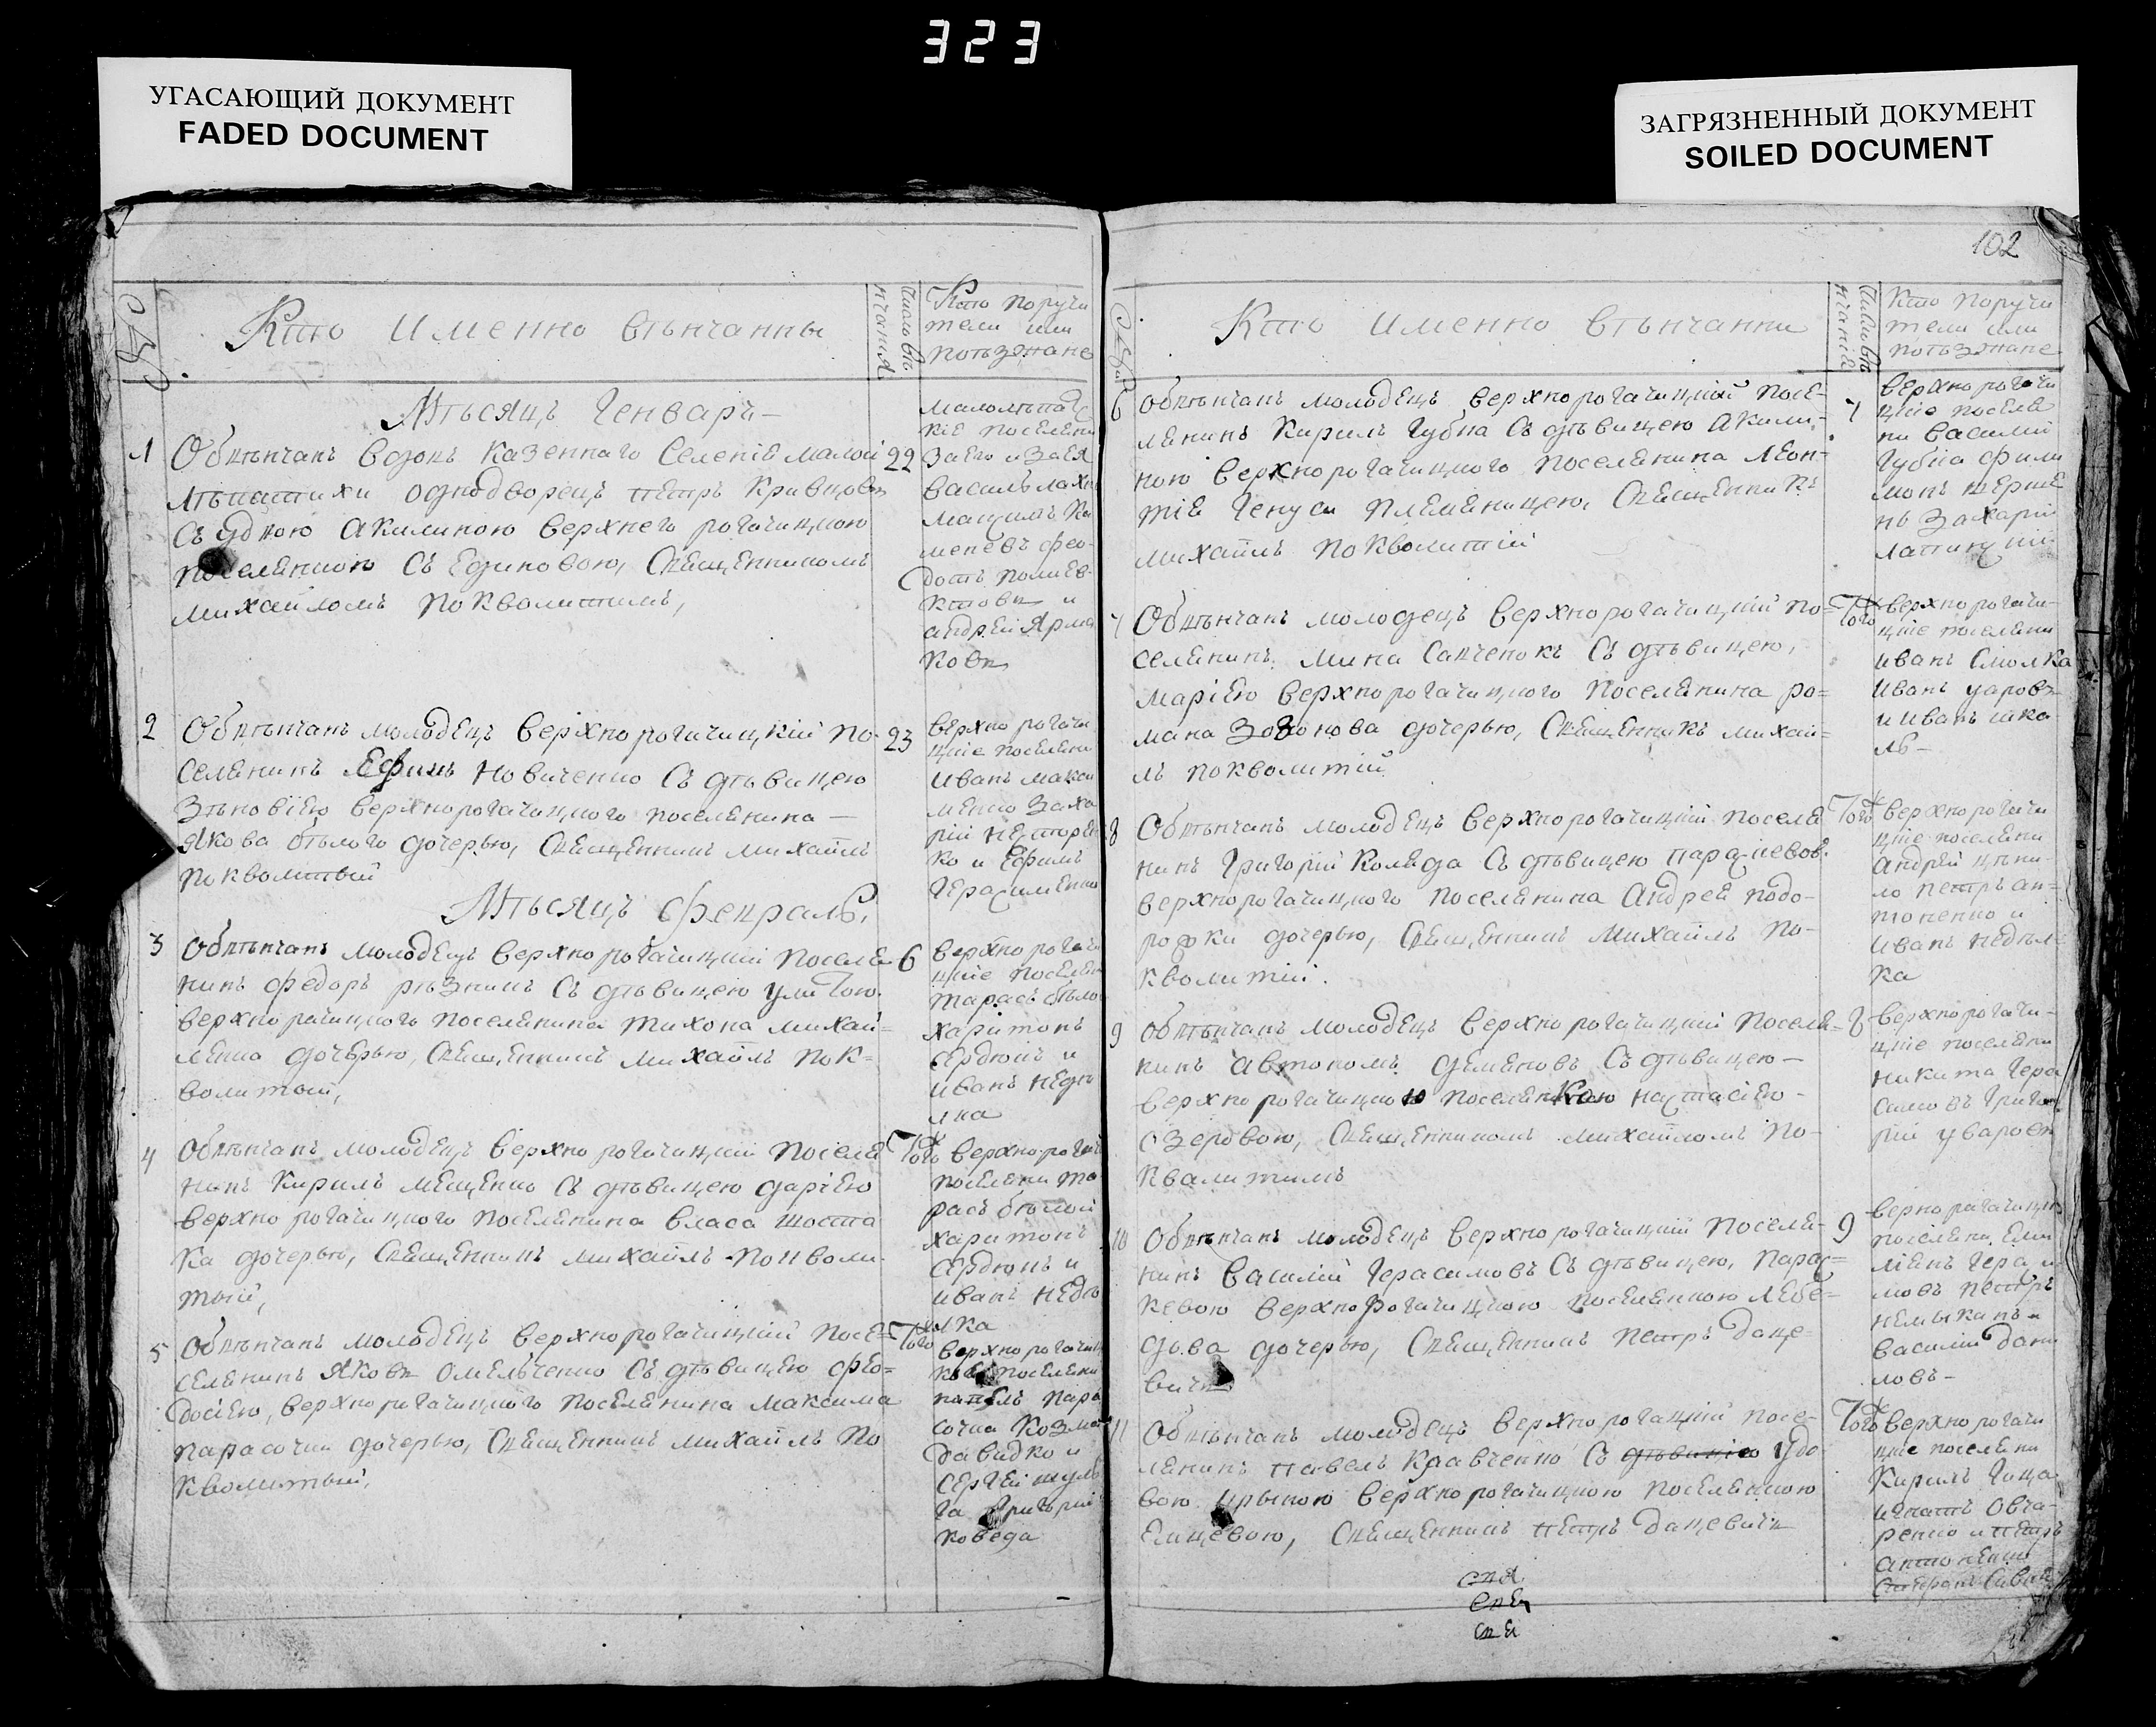 323
УГАСАЮЩИЙ ДОКУМЕНТ
FADED DOCUMENT
ЗАГРЯЗНЕННЫЙ ДОКУМЕНТ
SOILED DOCUMENT
Кто Именно вѣнчанны
число вѣ
нчания
Кто поручи
тели или
потьзжане
Мѣсяцъ Генварь
1 Обвѣнчанъ вдовъ казеннаго Селенiя малой 22
лѣпатихи однодворец петръ Кривцовъ
Съ удвою Акилиною верхнего рогачицкою
поселянкою Съ Единовою, Священникомъ
михайломъ поквалитимъ,
малолѣпа
кiе поселяни
За его и За ея
василь
максимъ ка
меневъ фео
дотъ
и
андрей Ярма
ковъ
2 Обвѣнчанъ молодецъ верхнорогачицкiй по- 23
селянинъ Ефимъ Новиченко Съ дѣвицею
Зѣновiею верхнорогачицкого поселянина —
Якова бѣлого дочерью, Священникъ михаилъ
поквалитый
верхно рогачи
цкiе поселяни
иванъ макси
менко Заха
рiй нестерен
ко и Ефимъ
герасименко
Мѣсяцъ февраль,
3 Обвѣнчанъ молодецъ верхнорогачицкiй поселя 6
нинъ федоръ рѣзникъ Съ дѣвицею улитою
верхнорачицкого поселянина тихона михай-
ленка дочерью, Священникъ михаилъ пок=
волитый,
верхно рогачи
цкiе поселян
тарасъ бѣло
харитонъ
сердюкъ и
иванъ недѣ
лка
4 Обвѣнчанъ молодецъ верхно рогачицкiй поселя Тогож
нинъ Кирилъ мещенко Съ дѣвицею дарiею
верхно рогачицкого поселянина власа шоста
ка дочерью, Священникъ михаилъ поквали
тый,
верхнорогач
поселяни та
расъ бѣлой
харитонъ
сердюкъ и
иванъ недѣ
лка
5 Обвѣнчанъ молодецъ верхнорогачицкiй посе= Тогож
селянинъ Яковъ Омельченко Съ дѣвицею фео=
досiею, верхнорогачицкого поселянина максима
парасочки дочерью, Священникъ михаилъ по
кволитый,
верхнорогачиц
поселяни
павелъ пара
сочка Козма
давидко и
сергей шуль
га григорiй
коведа
102
Кто Именно вѣнчанни
Кто поручи
тели или
потьзжане
6 Обвѣнчанъ молодецъ верхнорогачицкiй посе- 7
лянинъ Кирилъ губка Съ дѣвицею Акили-
ною верхнорогачицкого поселянина леон-
тiя племяницею, Священникъ
михаилъ поквалитiй
верхнорогачи
цкiе поселя
ни василiй
губка фили
монъ
Захарiй
7 Обвѣнчанъ молодецъ верхнорогачицкiй по= Тогож
селянинъ мина Савченокъ Съ дѣвицею,
марiею верхнорогачицкого поселянина ро=
мана дочерью, Священникъ михаи=
лъ поквалитiй
верхнорогачи-
цкiе поселяни
иванъ Смолка
иванъ уаровъ
и иванъ шка
ль-
8 Обвѣнчанъ молодецъ верхнорогачицкiй поселя Тогож
нинъ григорiй Коляда Съ дѣвицею параскевою
верхнорогачицкого поселянина Андрея подо-
рожки дочерью, Священникъ михаилъ по-
кволитiй.
верхнорогачи
цкiе поселяни
Андрей
ло петръ ан=
тоненко и
иванъ недѣл
ка
9 Обвѣнчанъ молодецъ верхнорогачицкiй поселя- 8
нинъ автономъ деменовъ Съ дѣвицею —
верхнорогачицкою поселянкою настасiею -
озеровою, Священникомъ михайломъ по-
квалитимъ
верхнорогачи-
цкiе поселяни
никита гера
симовъ григо
рiй уваровъ
10 Обвѣнчанъ молодецъ верхнорогачицкiй поселя- 9
нинъ василiй герасимовъ Съ дѣвицею, парас=
кевою верхнорогачицкою поселянкою лебе-
дьва дочерью, Священникъ петръ даце-
вичъ
верно рогачицки
поселяни Еми
лянъ гераси
мовъ петръ
немыкинъ и
василiй дани
ловъ-
11 Обвѣнчанъ молодецъ верхнорогацкiй посе- Тогож
лянинъ павелъ Кравченко Съ дѣвицею Удо
вою ирыною верхнорогачицкою поселянкою
Елицевою, Священникъ петръ дацевичъ
верхнорогачи
цкiе поселяни
Кирилъ
игнатъ Овча-
ренко и петръ
антоненко